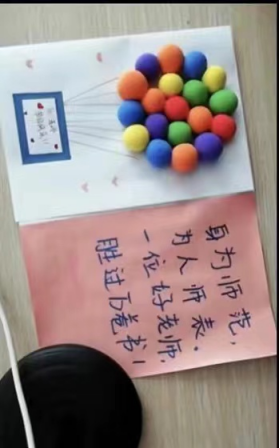 身为师范，
为人师表。
一位好老师，
胜过万卷书！